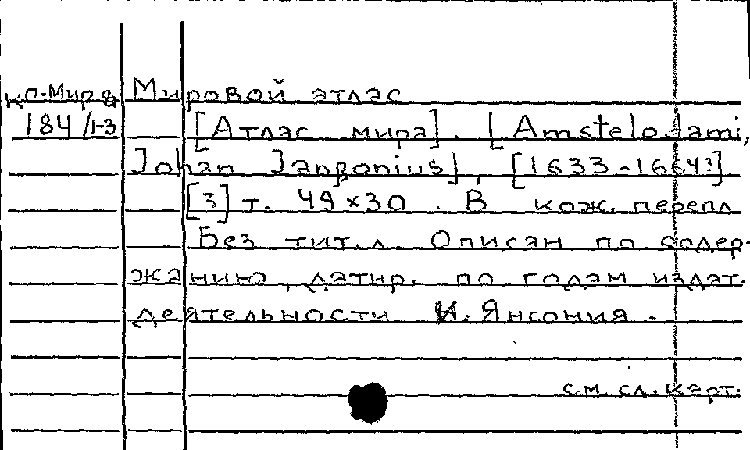 кп-Мира Мировой атлас
184/1-3 [Атлас мира]. [Amstelodami,
Johan Janssonius], [1633-1664?]
[3] т. 49×30. В кож. перепл
Без тит. л. Описан по содер-
жанию, датир. по годам издат.
деятельности И. Янсония.
см. сл. карт.